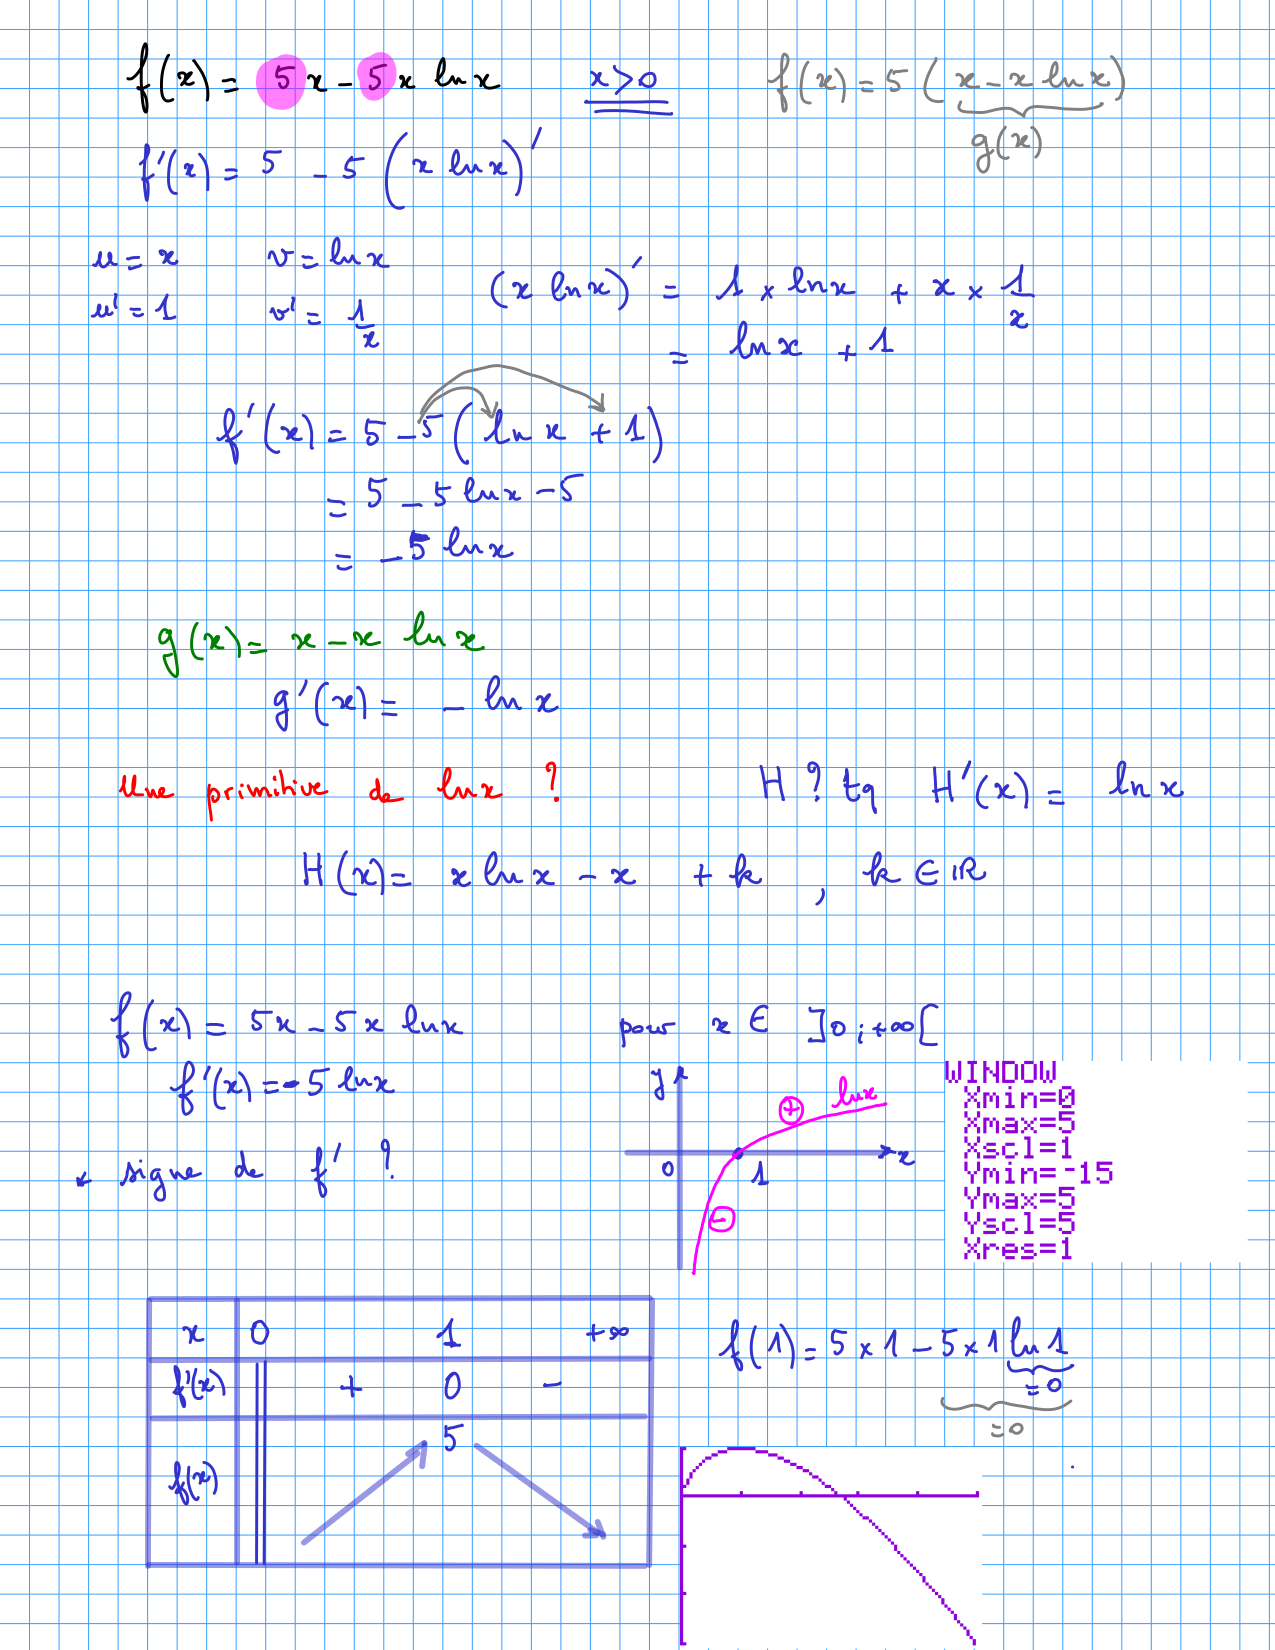 f(x) = 5x - 5x ln x    x > 0    f(x) = 5 ( x - x ln x )
g(x)
f'(x) = 5 - 5 ( x ln x )'
u = x    v = ln x
u' = 1    v' = 1/x
( x ln x )' = 1 × ln x + x × 1/x
= ln x + 1
f'(x) = 5 - 5 ( ln x + 1 )
= 5 - 5 ln x - 5
= - 5 ln x
g(x) = x - x ln x
g'(x) = - ln x
Une primitive de ln x ?    H ? tq H'(x) = ln x
H(x) = x ln x - x + k , k ∈ ℝ
f(x) = 5x - 5x ln x    pour x ∈ ]0 ; +∞[
f'(x) = -5 ln x
signe de f' ?
y
ln x
+
x
0
1
-
WINDOW
Xmin=0
Xmax=5
Xscl=1
Ymin=-15
Ymax=5
Yscl=5
Xres=1
x    0    1    +∞
f'(x)    +    0    -
5
f(x)
f(1) = 5 × 1 - 5 × 1 ln 1
= 0
= 0